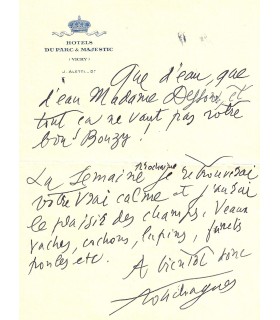 HOTELS
DU PARC & MAJESTIC
(VICHY)
Que d'eau, que
d'eau Madame et
tout ça ne vaut pas votre
bon Bouzy!
La Semaine prochaine je retrouverai
votre vrai calme et j'aurai
le plaisir des champs, Veaux
vaches, cochons, lapins,
poules etc.
A bientôt donc